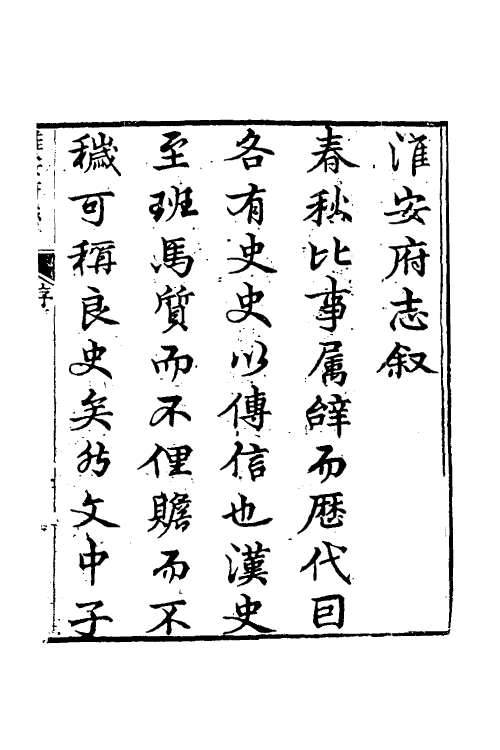 淮安府志叙
春秋比事属辞而歴代囙
各有史史以傳信也漢史
至班馬質而不俚贍而不
穢可稱良史矣然文中子
序